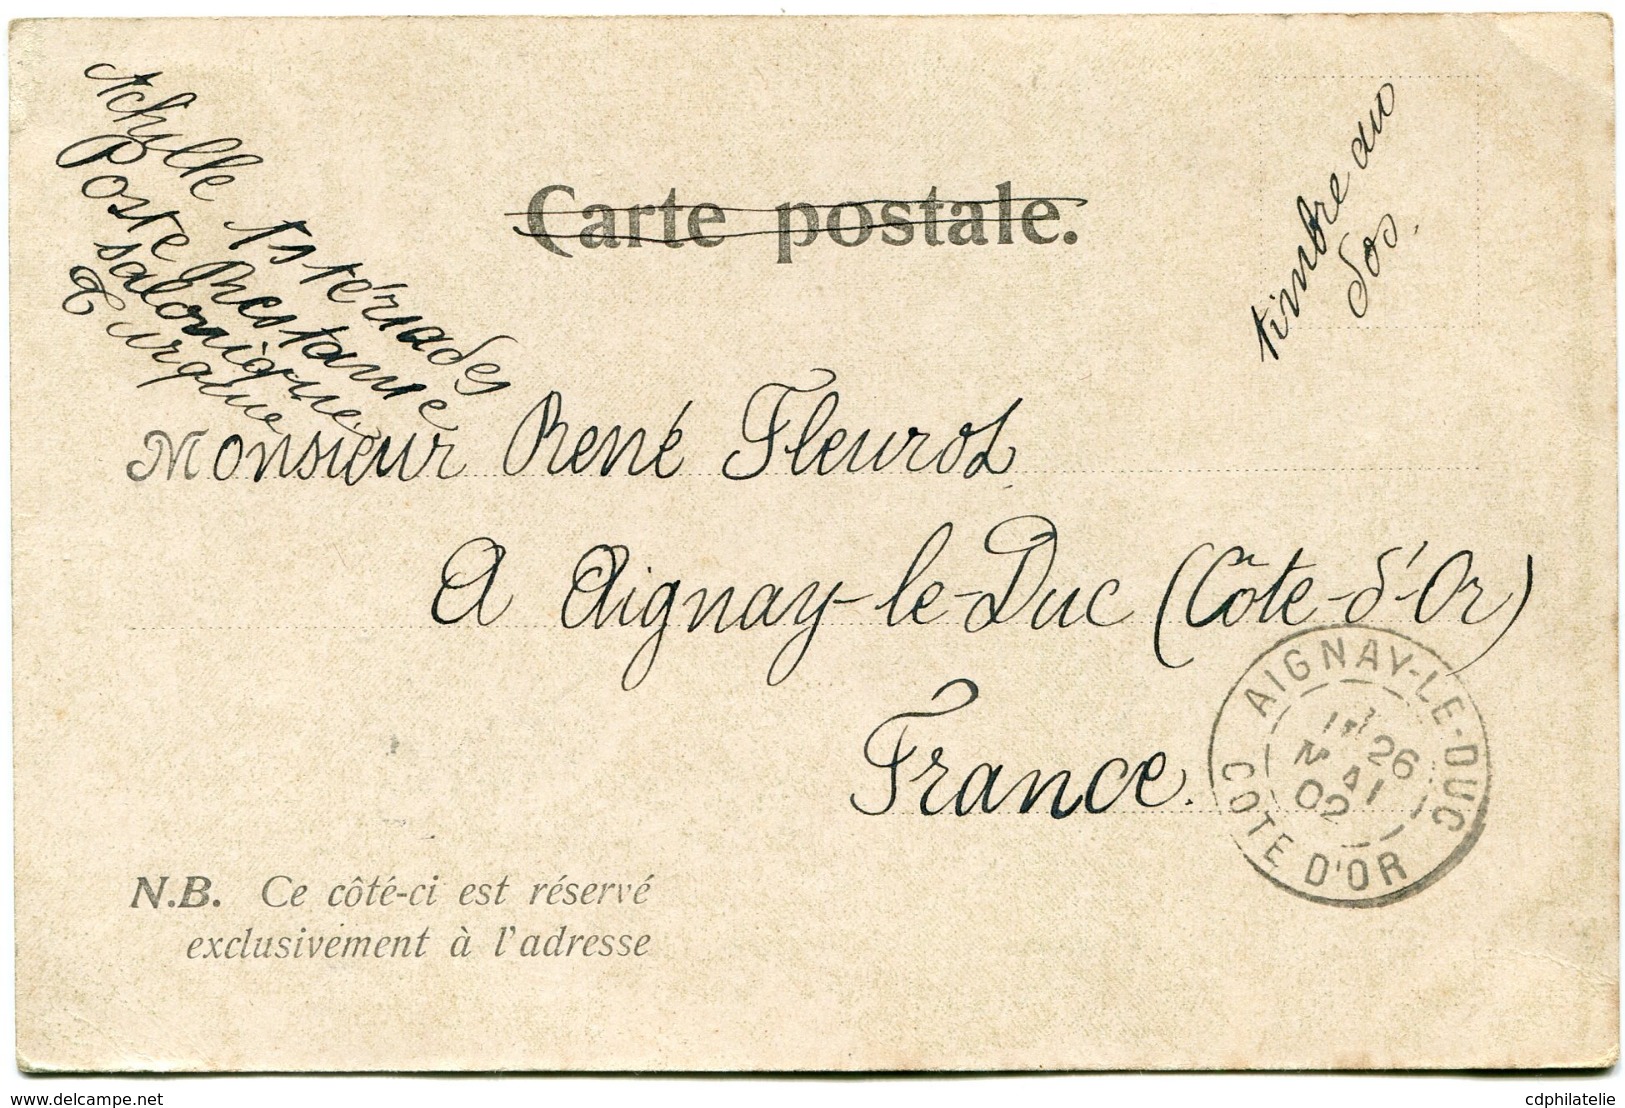 Achylle Astériades
Poste Restante
Salonique
Turquie
Carte postale.
timbre au
dos.
Monsieur René Fleurot
A Aignay-le-Duc (Côte-d'Or)
France.
AIGNAY-LE-DUC
26
MAI
02
COTE D'OR
N.B. Ce côté-ci est réservé
exclusivement à l'adresse
www.delcampe.net
cdphilatelie